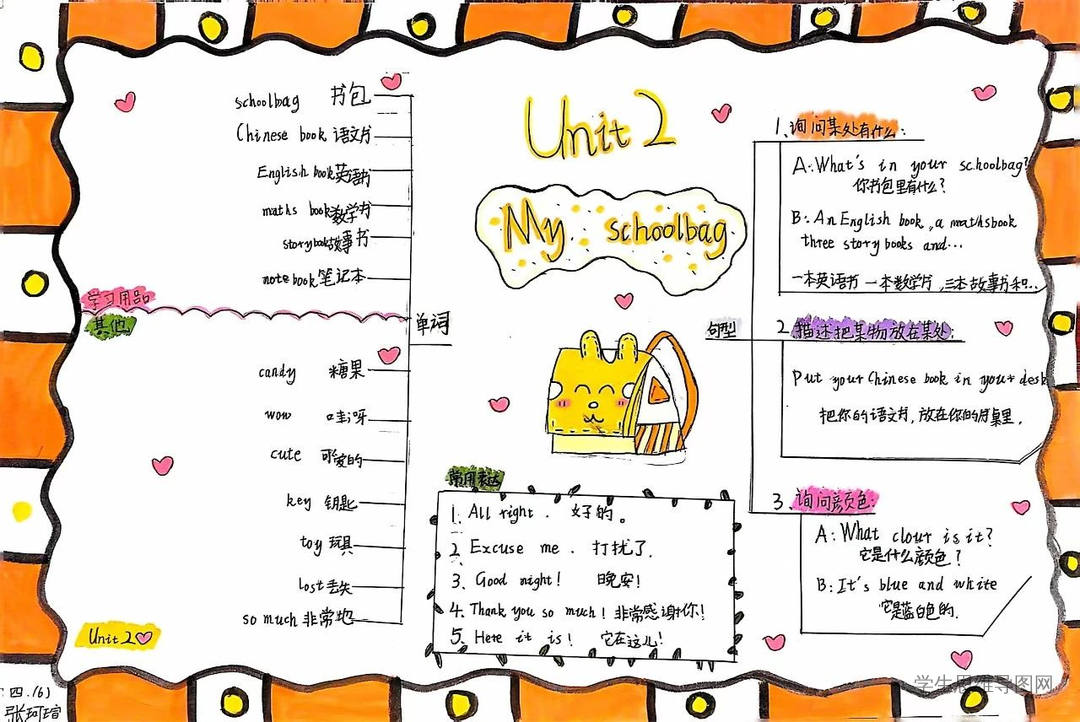 Unit 2
My schoolbag
单词
学习用品
schoolbag 书包
Chinese book 语文书
English book 英语书
maths book 数学书
storybook 故事书
notebook 笔记本
其他
candy 糖果
wow 哇呀
cute 可爱的
key 钥匙
toy 玩具
lost 丢失
so much 非常地
Unit 2
常用表达
1. All right. 好的。
2. Excuse me. 打扰了.
3. Good night! 晚安!
4. Thank you so much! 非常感谢你!
5. Here it is! 它在这儿!
句型
1. 询问某处有什么:
A: What's in your schoolbag?
你书包里有什么?
B: An English book, a mathsbook
three story books and...
一本英语书 一本数学书,三本故事书和...
2. 描述把某物放在某处:
Put your Chinese book in your desk
把你的语文书,放在你的桌里.
3、询问颜色:
A: What clour is it?
它是什么颜色?
B: It's blue and white
它是蓝白色的.
四.(6)
张珂瑄
学生思维导图网